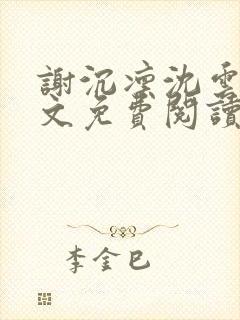 謝沉凜沈雲
文免費閱讀
李金巳